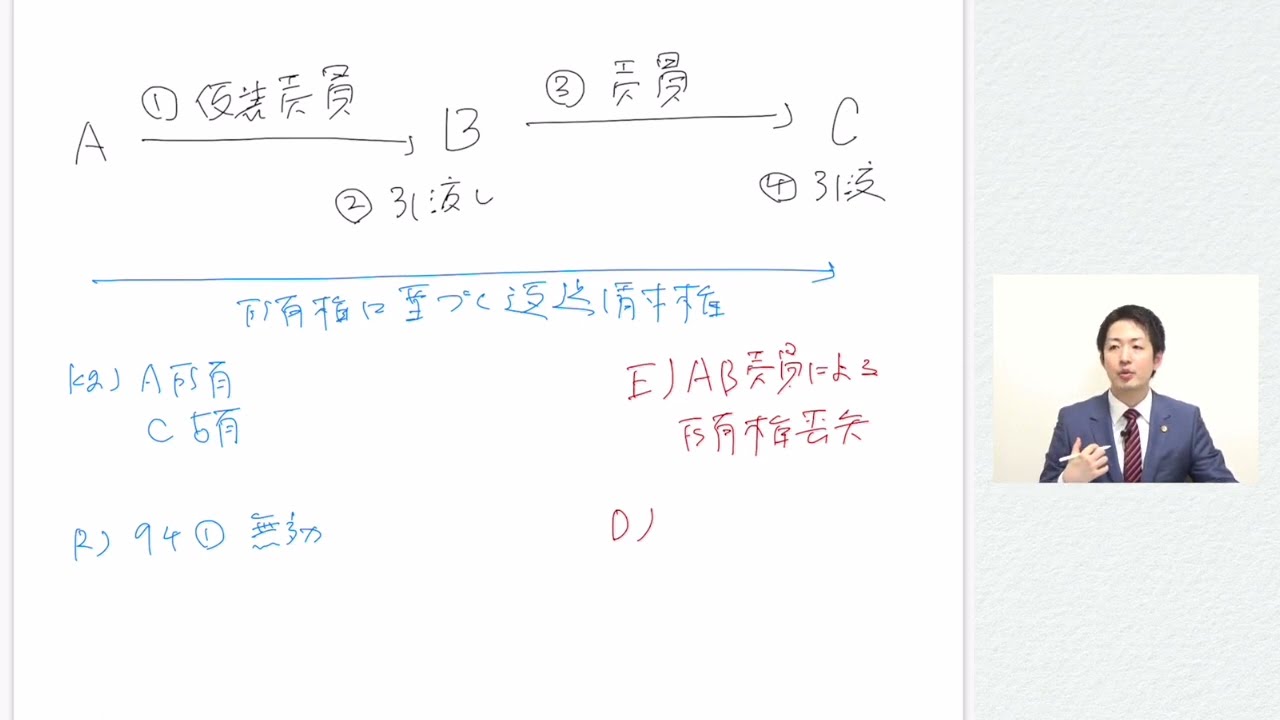 A ① 仮装売買 B ③ 売買 C
② 引渡し ④ 引渡
所有権に基づく返還請求権
Kg) A所有
C占有
E) AB売買による
所有権喪失
R) 94① 無効
D)